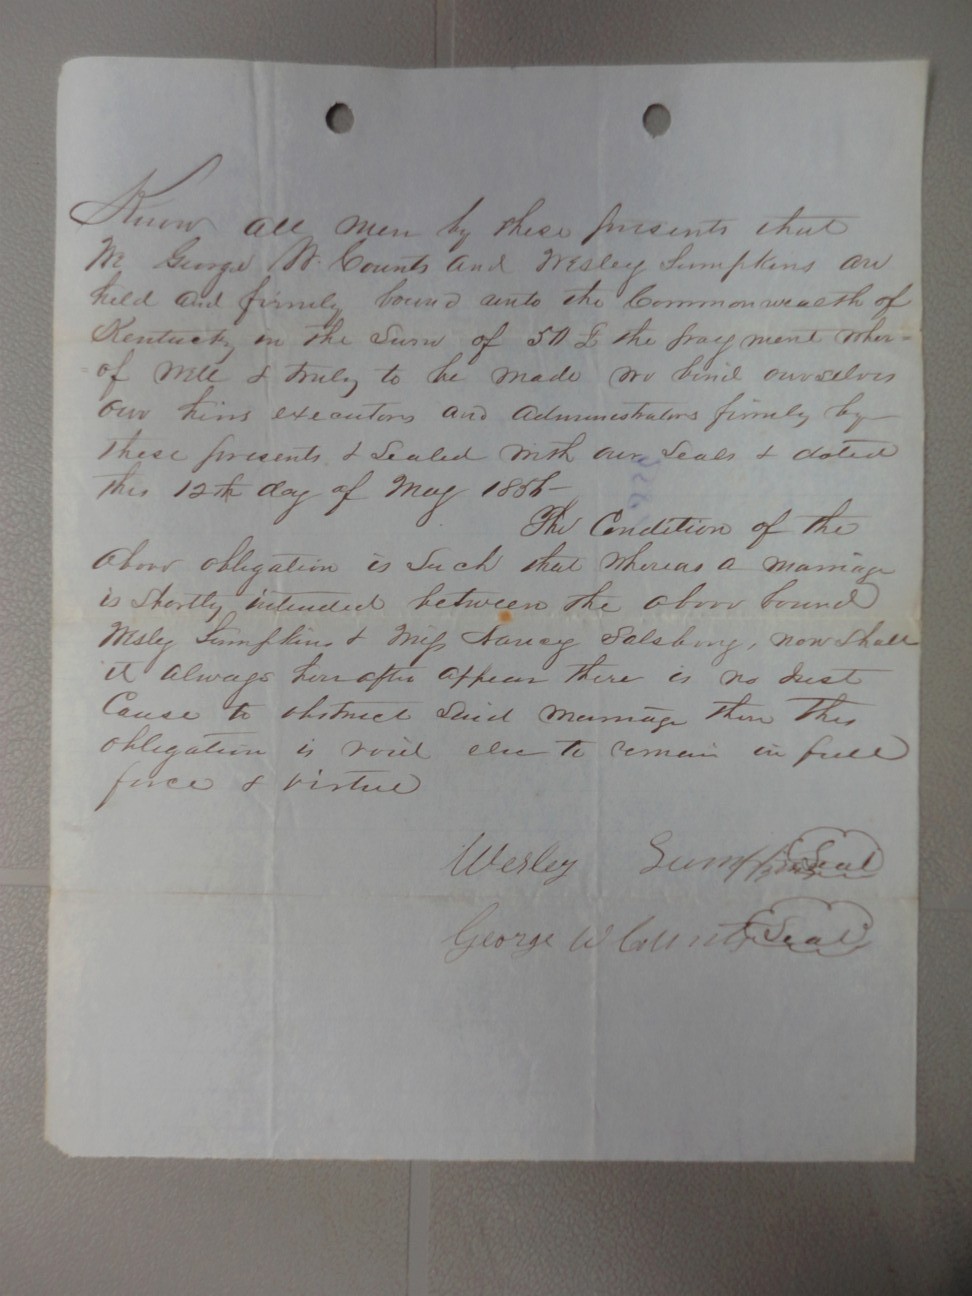 Know all men by these presents that
We George W. Counts and Wesley Lumpkins are
held and firmly bound unto the Commonwealth of
Kentucky in the Sum of 50 £ the payment wher=
=of well & truly to be made we bind ourselves
our hiirs executors and administrators firmly by
these presents & Sealed with our Seals & dated
this 12th day of May
The Condition of the
above obligation is Such that whereas a marriage
is Shortly intended between the above bound
Wesley Lumpkins & Miss Nancy Salsbury, now Shall
it always hereafter appear there is no Just
Cause to obstruct Said marriage then this
obligation is void else to remain in full
force & virtue
Wesley Lumpkins Seal
George W Counts Seal